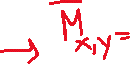 → M̅x,y=